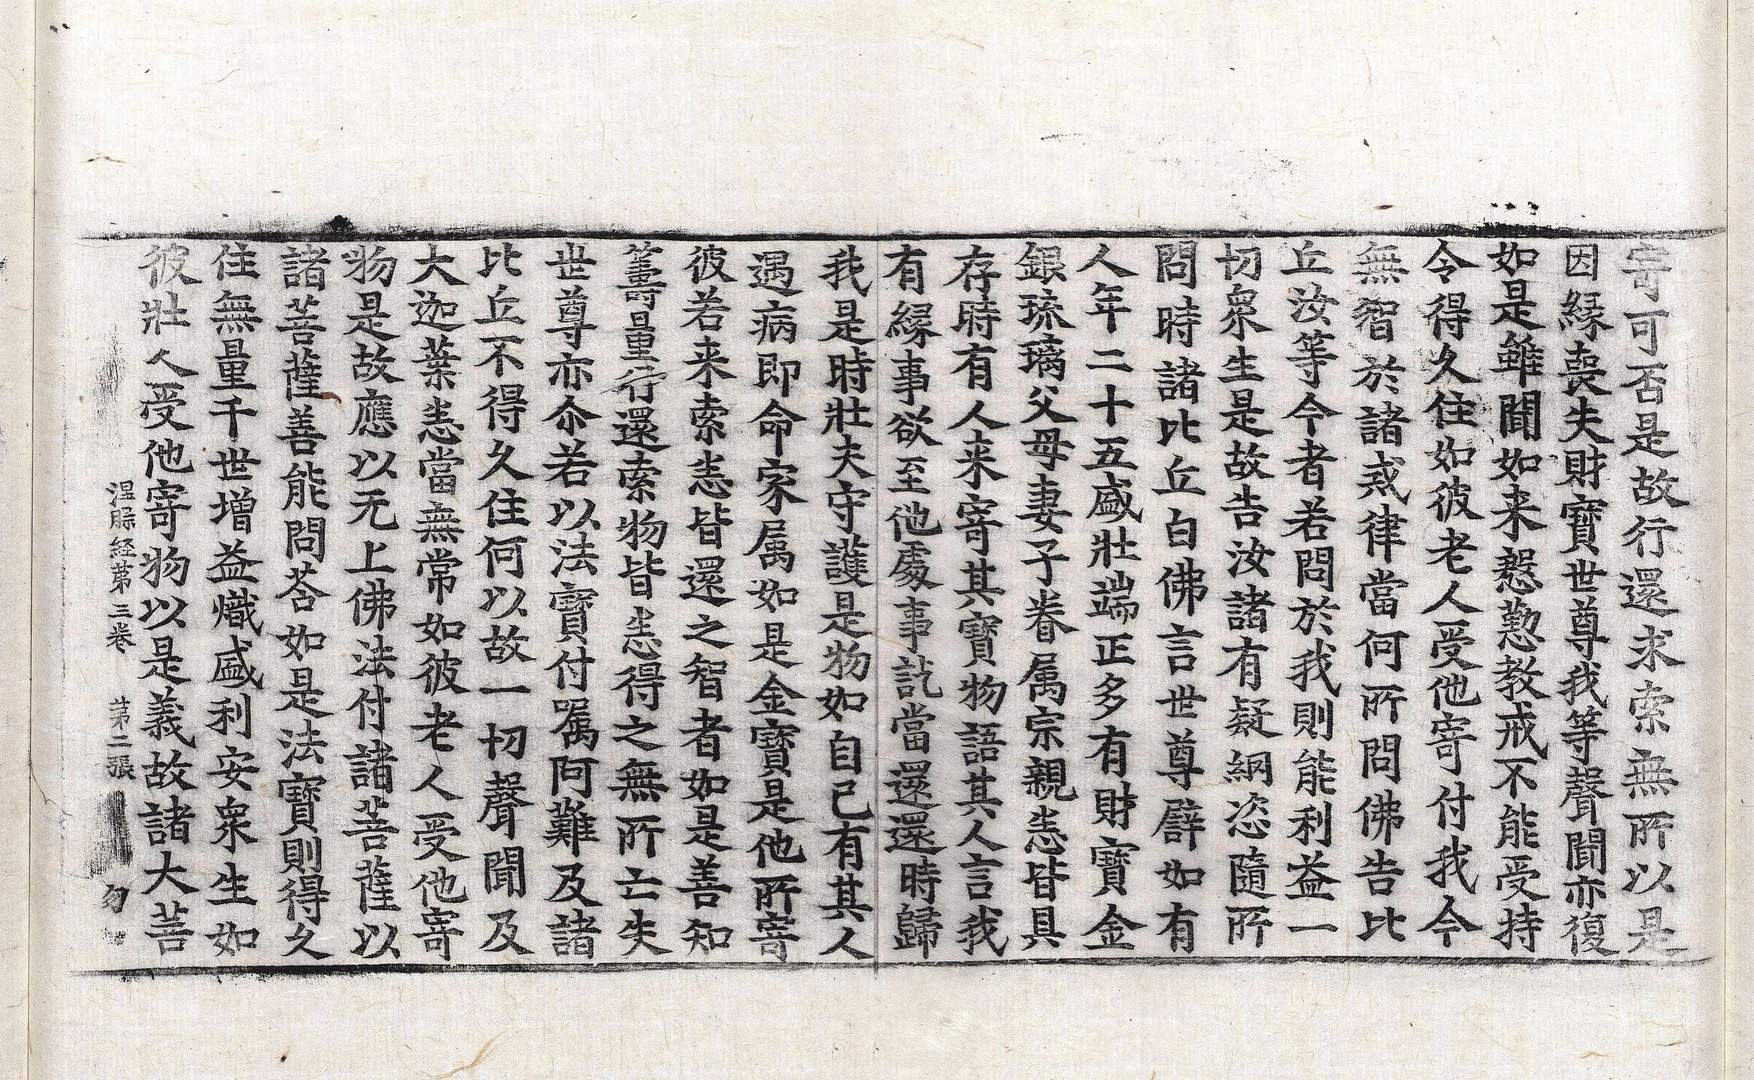 寄可否是故行還求索無所以是
因縁喪失財寶世尊我等聲聞亦復
如是雖聞如来慇懃教戒不能受持
令得久住如彼老人受他寄付我今
無智於諸戒律當何所問佛告比
丘汝等今者若問於我則能利益一
切衆生是故告汝諸有疑網恣隨所
問時諸比丘白佛言世尊譬如有
人年二十五盛壯端正多有財寶金
銀琉璃父母妻子眷属宗親悉皆具
存時有人来寄其寶物語其人言我
有縁事欲至他處事訖當還還時歸
我是時壯夫守護是物如自己有其人
遇病即命家属如是金寶是他所寄
彼若来索悉皆還之智者如是善知
籌量行還索物皆悉得之無所亡失
世尊亦尒若以法寶付嘱阿難及諸
比丘不得久住何以故一切聲聞及
大迦葉悉當無常如彼老人受他寄
物是故應以无上佛法付諸菩薩以
諸菩薩善能問荅如是法寶則得久
住無量千世增益熾盛利安衆生如
彼壯人受他寄物以是義故諸大菩
涅槃経第三卷 第二張